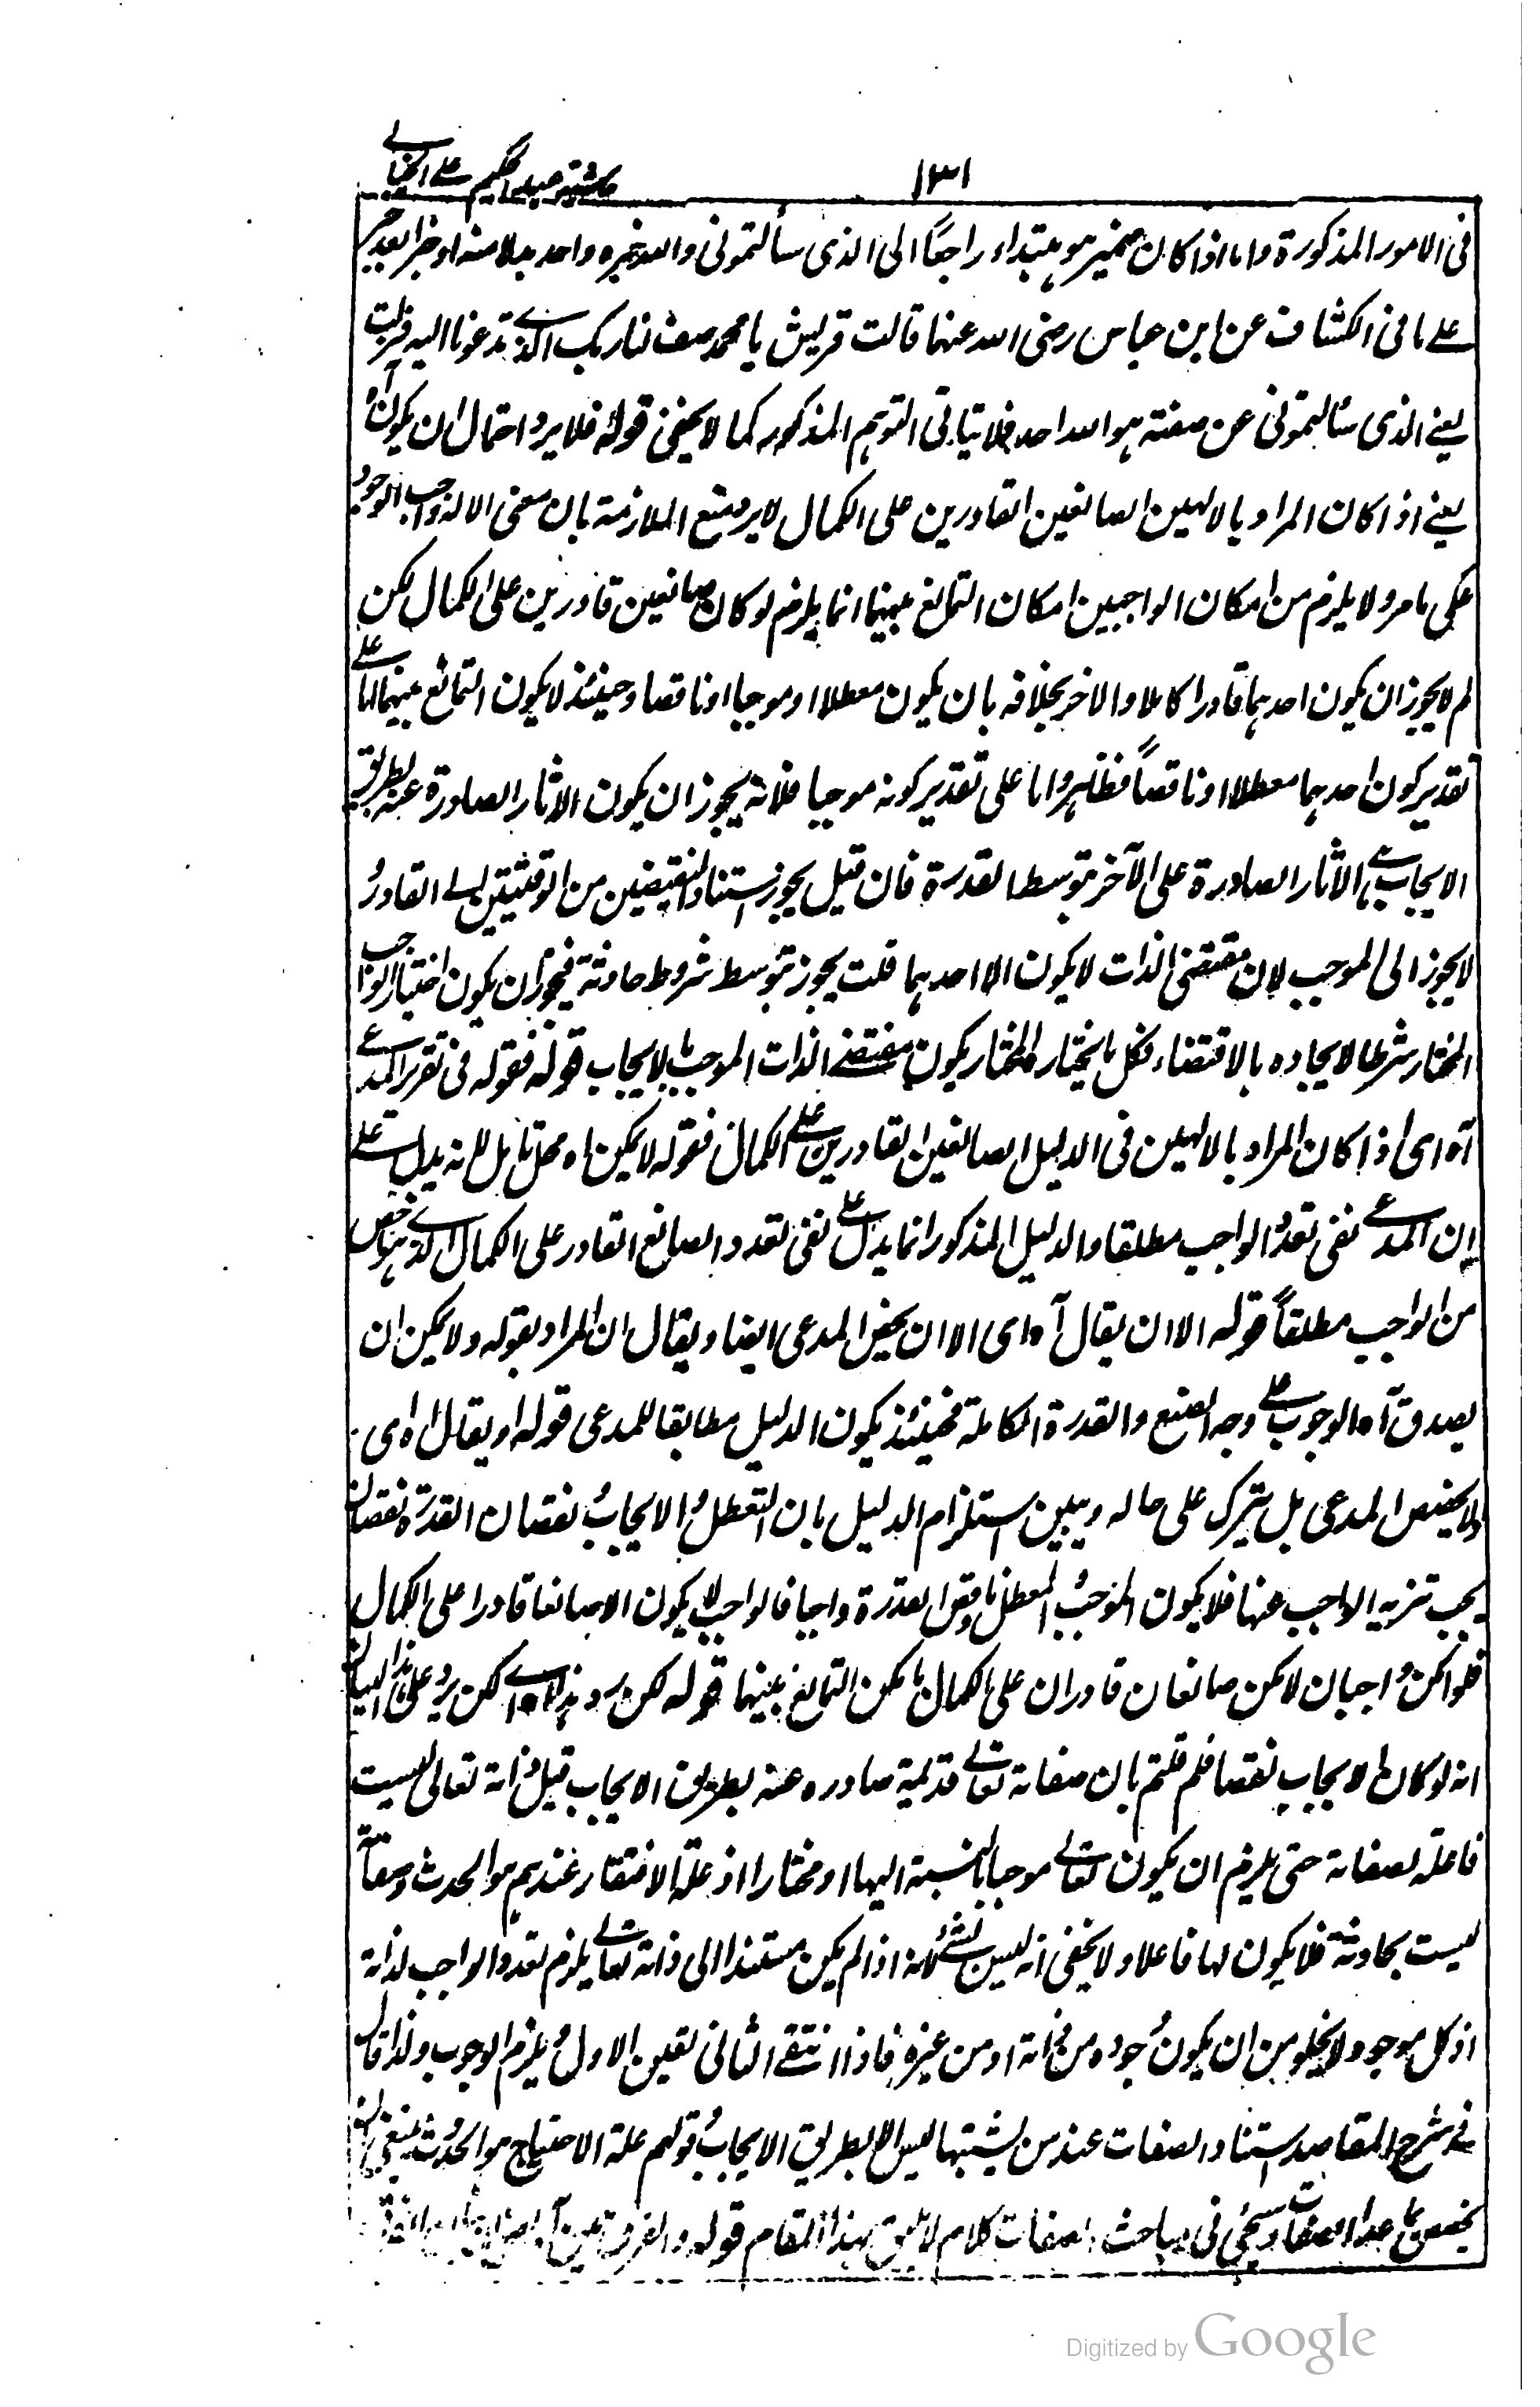 ١٣١
حاشية عبد الحكيم على الخيالى
فى الامور المذكورة واما اذا كان ضمير هو مبتداء راجعًا الى الذى سألتمونى والله خبره واحد بدلا منه او خبرا بعد خبر
على ما فى الكشاف عن ابن عباس رضى الله عنهما قالت قريش يا محمد صف لنا ربك الذى تدعونا اليه فنزلت
يعنى الذى سألتمونى عن صفته هو الله احد فلا يتاتى التوهم المذكور كما لا يخفى قوله فلا يرد احتمال ان يكون آه
يعنى اذا كان المراد بالالهين الصانعين القادرين على الكمال لا يرد منع الملازمة بان معنى الاله واجب الوجود
على ما مر ولا يلزم من امكان الواجبين امكان التمانع بينهما انما يلزم لو كان صانعين قادرين على الكمال لكن
لم لا يجوز ان يكون احدهما قادرا كاملا والاخر بخلافه بان يكون معطلا او موجبا او ناقصا وحينئذ لا يكون التمانع بينهما اما على
تقدير كون احدهما معطلا او ناقصًا فظاهر واما على تقدير كونه موجبا فلانه يجوز ان يكون الاثار الصادرة عنه بطريق
الايجاب هى الاثار الصادرة على الآخر بتوسط القدرة فان قيل يجوز استناد النقيضين من الوقتيتين الى القادر و
لا يجوز الى الموجب لان مقتضى الذات لا يكون الا احدهما قلت يجوز بتوسط شروط حادثة فيجوز ان يكون اختيار الواجب
المختار شرطا لايجاده بالاقتضاء فكل ما يختاره المختار يكون مقتضى الذات الموجب بالايجاب قوله فقوله فى تقرير المدعى
آه اى اذا كان المراد بالالهين فى الدليل الصانعين القادرين على الكمال فقوله لا يمكن اه محل تامل لانه يدل على
ان المدعى نفى تعدد الواجب مطلقا والدليل المذكور انما يدل على نفى تعدد الصانع القادر على الكمال الذى هو اخص
من الواجب مطلقاً قوله الا ان يقال آه اى الا ان يخص المدعى ايضا ويقال ان المراد بقوله ولا يمكن ان
يصدق آه الوجوب على وجه الصنع والقدرة الكاملة فحينئذ يكون الدليل مطابقا للمدعى قوله او يقال اه اى
ولا يخصص المدعى بل يترك على حاله ويبين استلزام الدليل بان التعطل والايجاب ونقصان القدرة نقصان
يجب تنزيه الواجب عنها فلا يكون الموجب والمعطل وناقص القدرة واجبا فالواجب لا يكون الا صانعا قادرا على الكمال
فلو امكن واجبان لامكن صانعان قادران على الكمال فامكن التمانع بينهما قوله لكن يرد هذا اه اى لكن يرد على هذا البيان
انه لو كان الايجاب نقصا فلم قلتم بان صفاته تعالى قديمة صادره عنه بطريق الايجاب قيل ذاته تعالى ليست
فاعلة لصفاته حتى يلزم ان يكون تعالى موجبا بالنسبة اليها او مختارا اذ علة الافتقار عندهم هو الحدوث وصفاته
ليست بحادثة فلا يكون لها فاعلا ولا يخفى انه ليس بشئ لانه اذا لم يكن مستندا الى ذاته تعالى يلزم تعدد الواجب لذاته
اذ كل موجود لا يخلو من ان يكون وجوده من ذاته او من غيره فاذا انتفى الثانى تعين الاول ويلزم الوجوب ولذا قال
فى شرح المقاصد استناد الصفات عند من يثبتها ليس الا بطريق الايجاب وقولهم علة الاحتياج هو الحدوث ينبغى ان
يخصص بما عدا الصفات وسيجئ فى مباحث الصفات كلام لا يليق بهذا المقام قوله والفرق بين
Digitized by Google